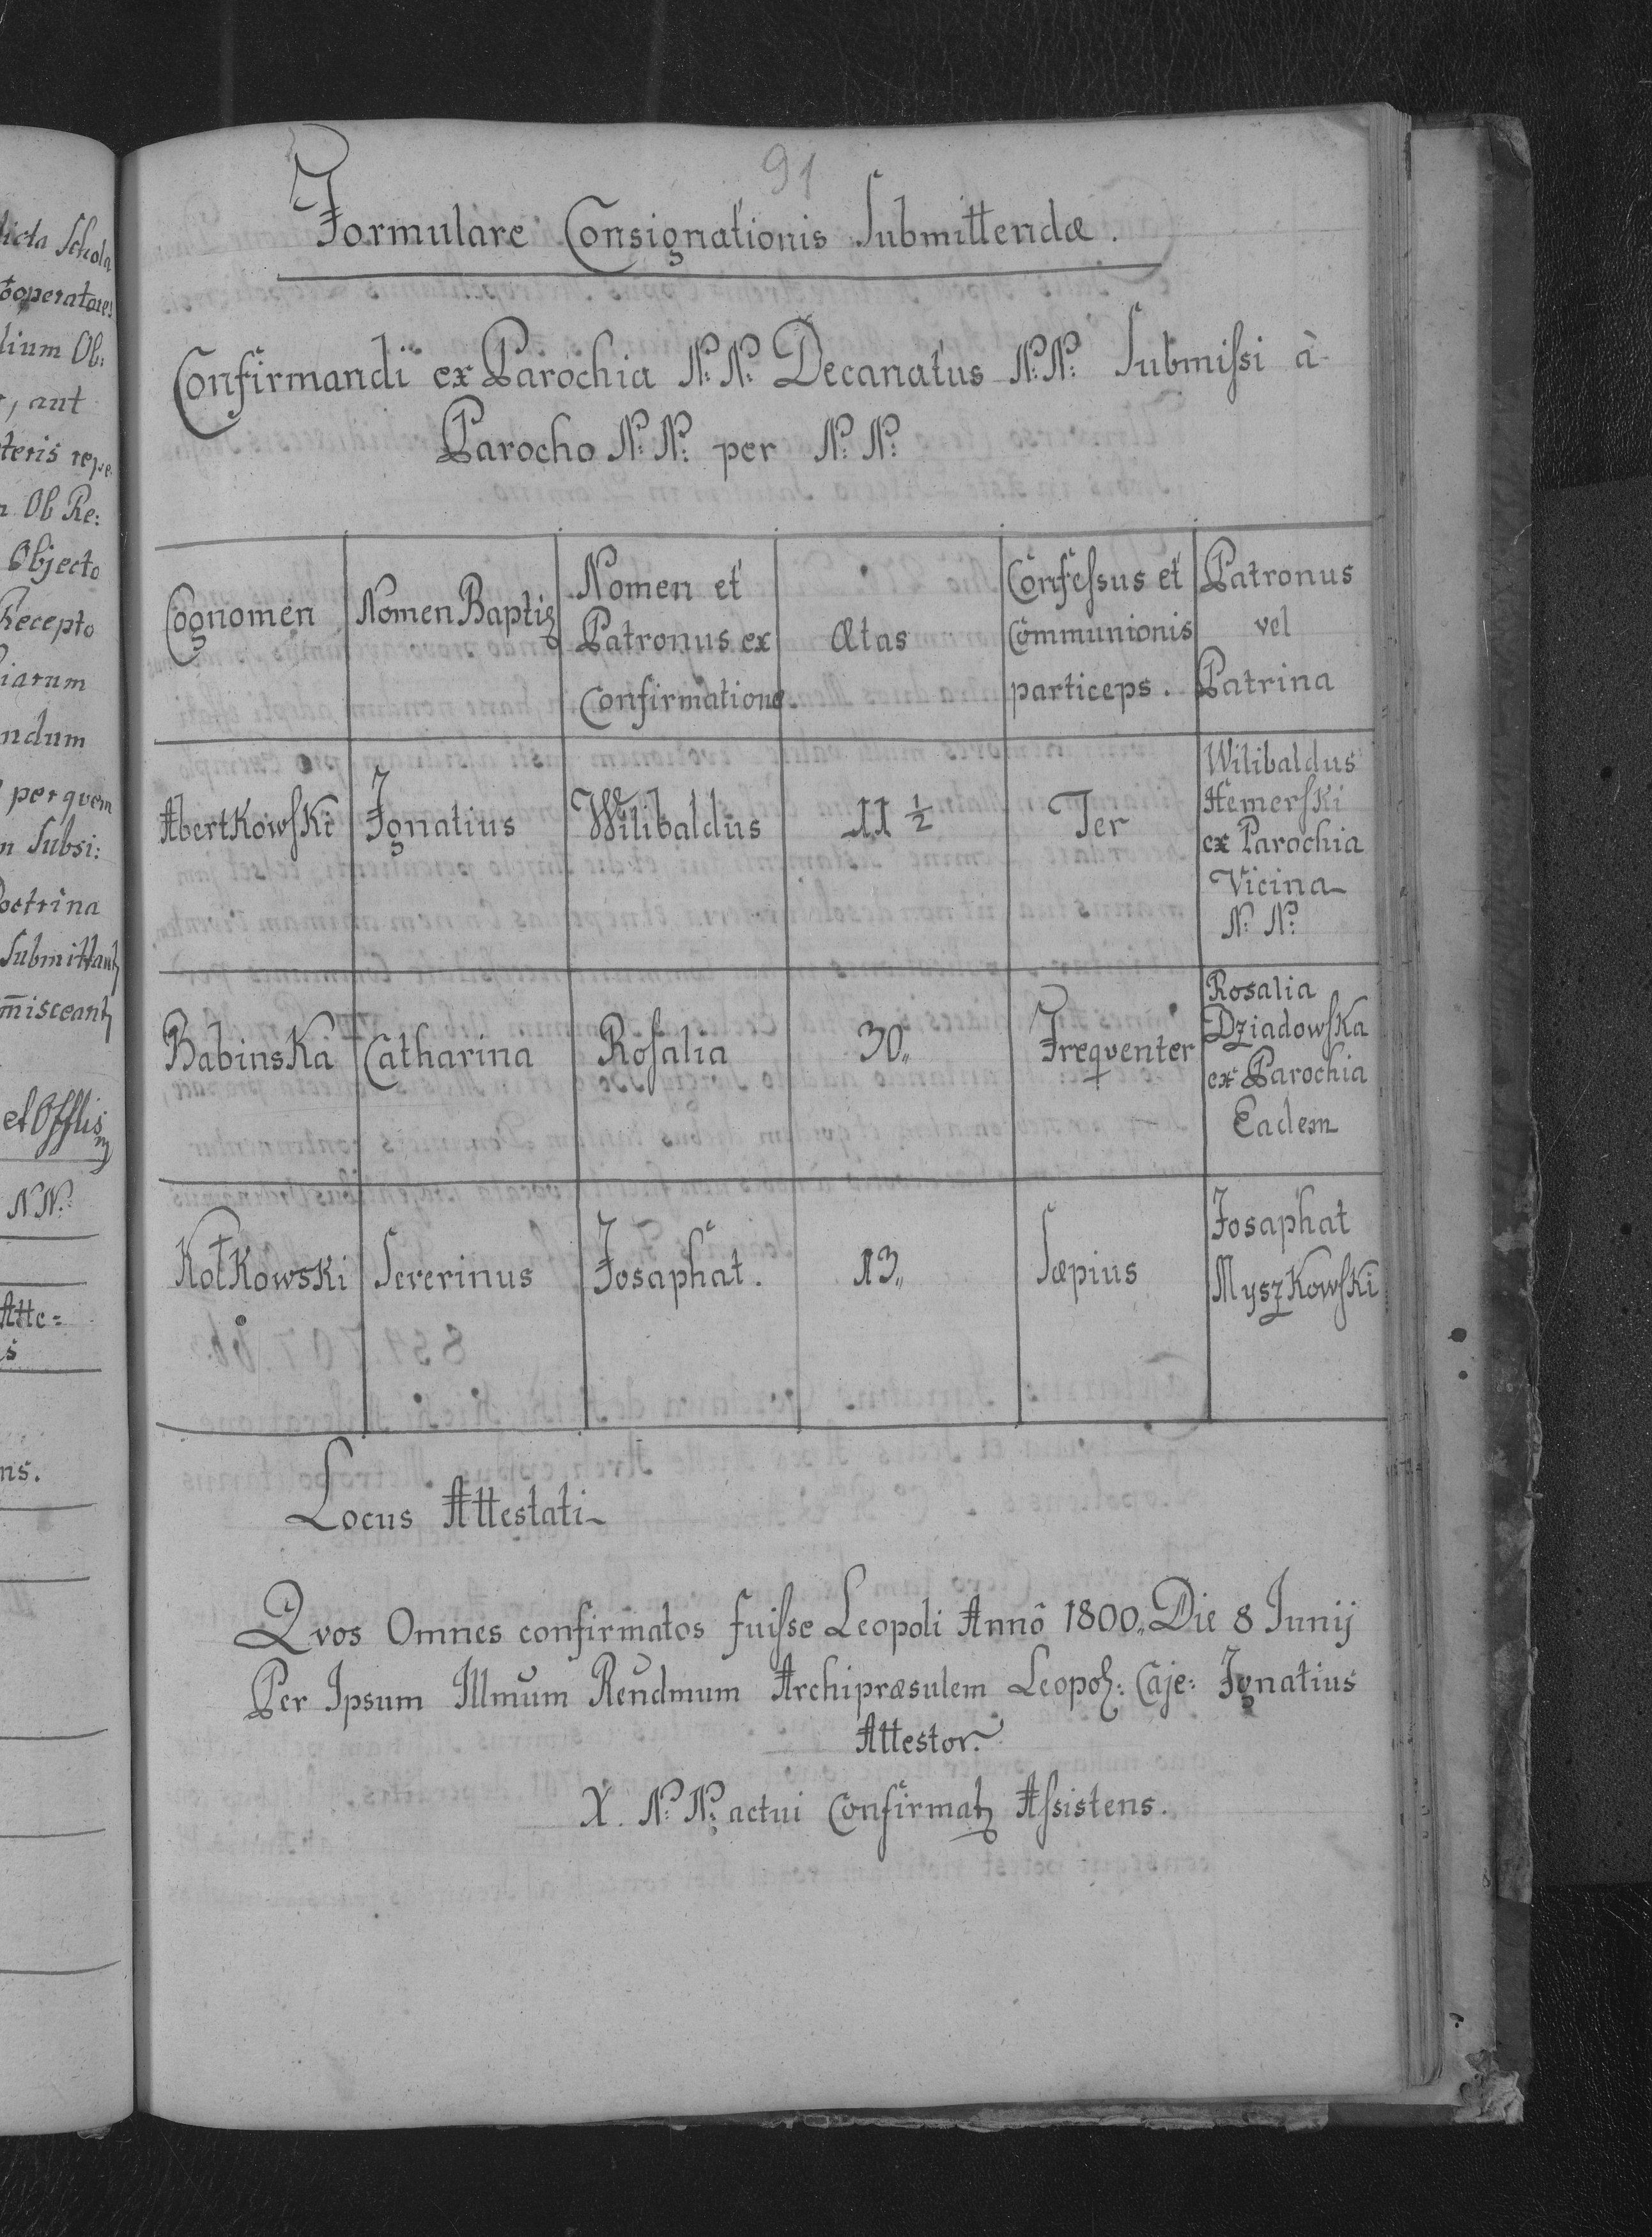 91
Formulare Consignationis Submittendæ.
Confirmandi ex Parochia N: N: Decanatus N: N: Submissi à
Parocho N: N: per N: N:
Cognomen
Nomen Baptiz
Nomen et
Patronus ex
Confirmatione
Ætas
Confessus et
Communionis
particeps.
Patronus
vel
Patrina
AbertKowsKi
Ignatius
Wilibaldus
11 ½
Ter
Wilibaldus
HemersKi
ex Parochia
Vicina
N: N:
BabinsKa
Catharina
Rosalia
30,,
Freqventer
Rosalia
DziadowsKa
ex Parochia
Eadem
KołKowsKi
Sererinus
Josaphat.
13,,
Sæpius
Josaphat
MyszKowsKi
Locus Attestati
Qvos Omnes confirmatos fuisse Leopoli Annô 1800,, Die 8 Junij
Per Ipsum Illmum Rendmum Archipræsulem Leopol: Caje: Ignatius
Attestor.
X. N: N: actui Confirmatz Assistens.
dicta Schola
Cooperatores
dium Ob:
, aut
teris repe:
Ob Re:
Objecto
Recepto
iarum
ndum
per qvem
n Subsi:
Doctrina
Submittantz
misceantz
et Offlis
N N:
Atte=
s
ns.